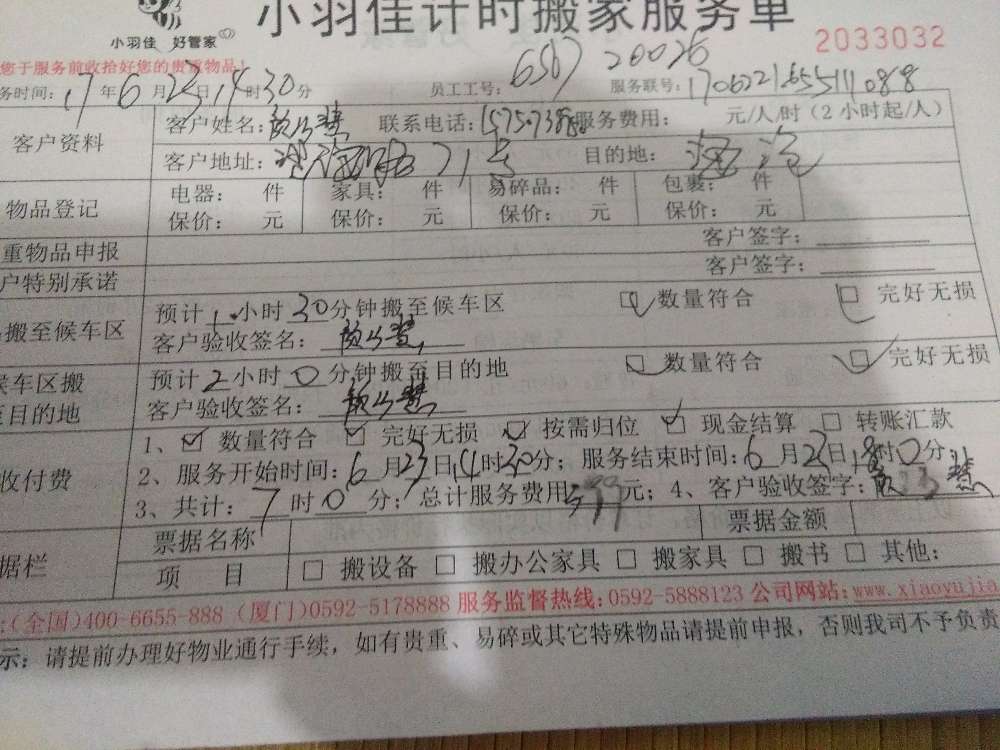 小羽佳 好管家
小羽佳计时搬家服务单
2033032
您于服务前收拾好您的贵重物品!
务时间: 17年6月23日14时30分 员工工号: 服务联号:
客户资料 客户姓名: 联系电话: 服务费用: 元/人/时(2小时起/人)
客户地址: 71号 目的地:
物品登记 电器: 件 家具: 件 易碎品: 件 包裹: 件
保价: 元 保价: 元 保价: 元 保价: 元
重物品申报 客户签字:
户特别承诺 客户签字:
搬至候车区 预计1小时30分钟搬至候车区 数量符合 完好无损
客户验收签名:
候车区搬 预计2小时0分钟搬至目的地 数量符合 完好无损
至目的地 客户验收签名:
1、 数量符合 完好无损 按需归位 现金结算 转账汇款
收付费 2、服务开始时间: 6月23日14时30分; 服务结束时间: 6月23日 时0分;
3、共计: 7时0分; 总计服务费用 元; 4、客户验收签字:
据栏 票据名称 票据金额
项 目 搬设备 搬办公家具 搬家具 搬书 其他:
:(全国)400-6655-888 (厦门)0592-5178888 服务监督热线:0592-5888123 公司网站:www.xiaoyujia
示: 请提前办理好物业通行手续，如有贵重、易碎或其它特殊物品请提前申报，否则我司不予负责